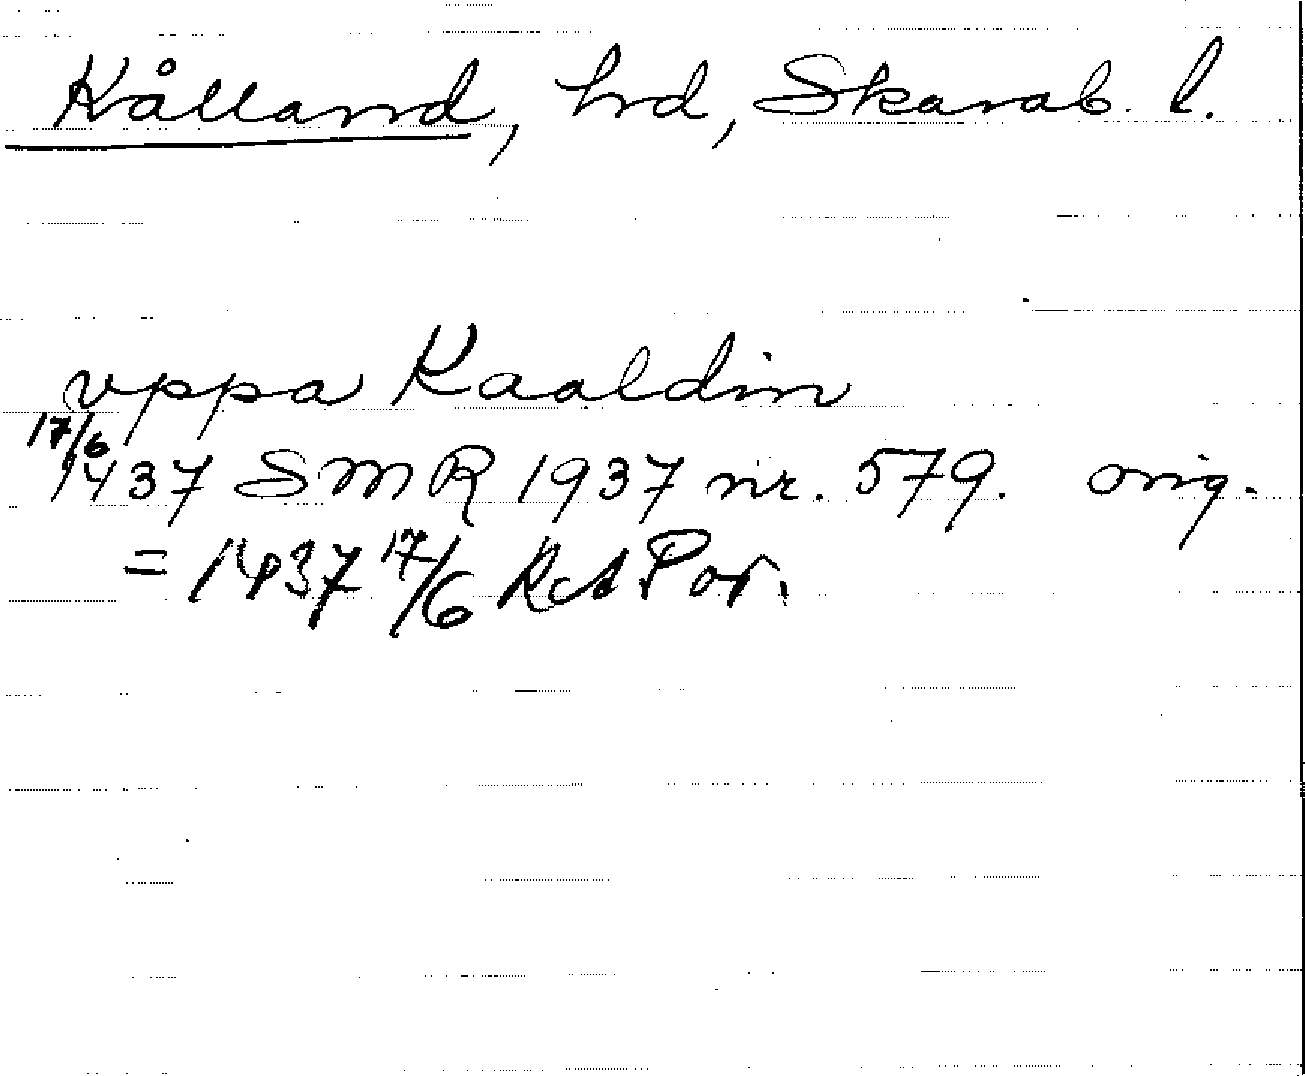 Kålland, hrd, Skarab. l.
vppa Kaaldin
17/6
1437 SMR 1937 nr. 579. orig.
= 1437 17/6 RA Por.